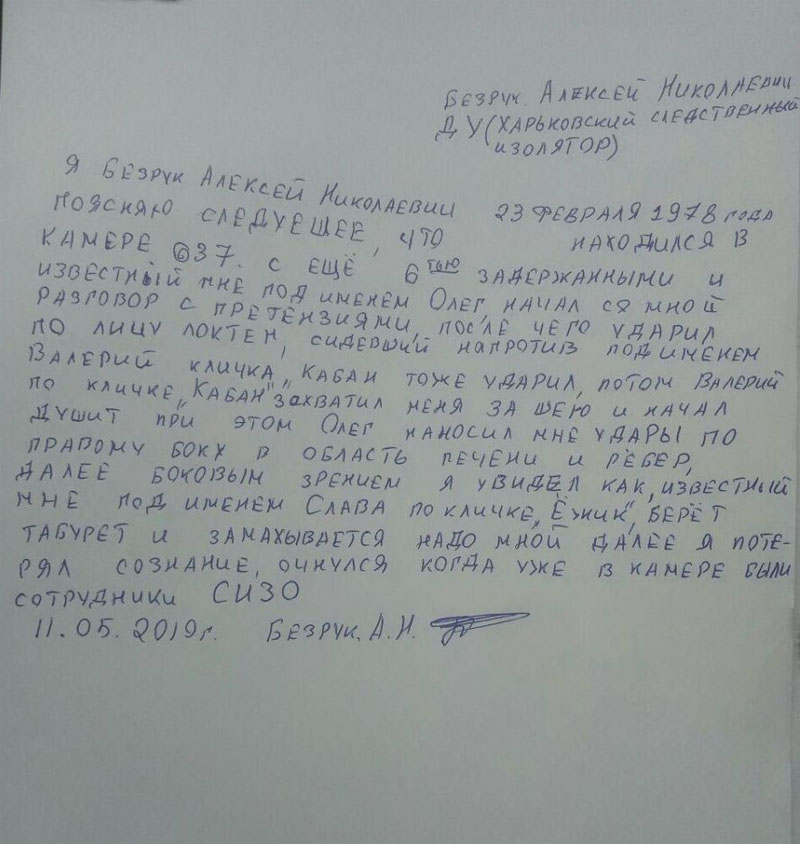 Безрук. Алексей Николаевич
ДУ (Харьковский следственный
изолятор)
Я Безрук Алексей Николаевич 23 февраля 1978 года
поясняю следуещее, что находился в
камере 637. с ещё 6тью задержанными и
известный мне под именем Олег, начал ся мной
разговор с претензиями, после чего ударил
по лицу локтем, сидевший напротив под именем
Валерий кличка „Кабан тоже ударил, потом Валерий
по кличке „Кабан" захватил меня за шею и начал
душит при этом Олег наносил мне удары по
правому боку в область печени и рёбер,
далее боковым зрением я увидел как, известный
мне под именем Слава по кличке „Ёжик", берёт
табурет и замахывается надо мной далее я поте-
рял сознание, очнулся когда уже в камере были
сотрудники СИЗО
11.05.2019г. Безрук. А.Н.